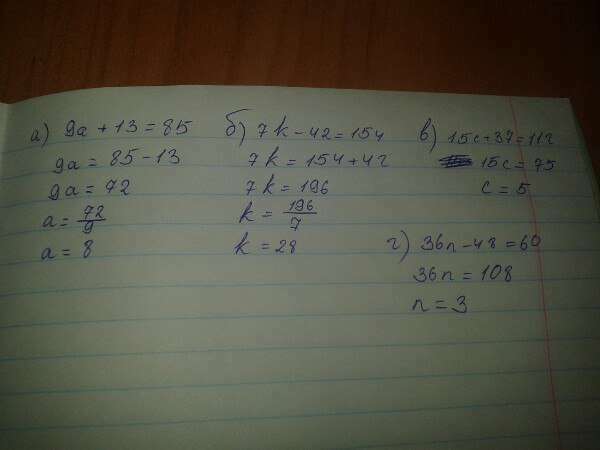 а) 9a + 13 = 85
9a = 85 - 13
9a = 72
a = 72/9
a = 8
б) 7k - 42 = 154
7k = 154 + 42
7k = 196
k = 196/7
k = 28
в) 15c + 37 = 112
15c = 75
c = 5
г) 36n - 48 = 60
36n = 108
n = 3